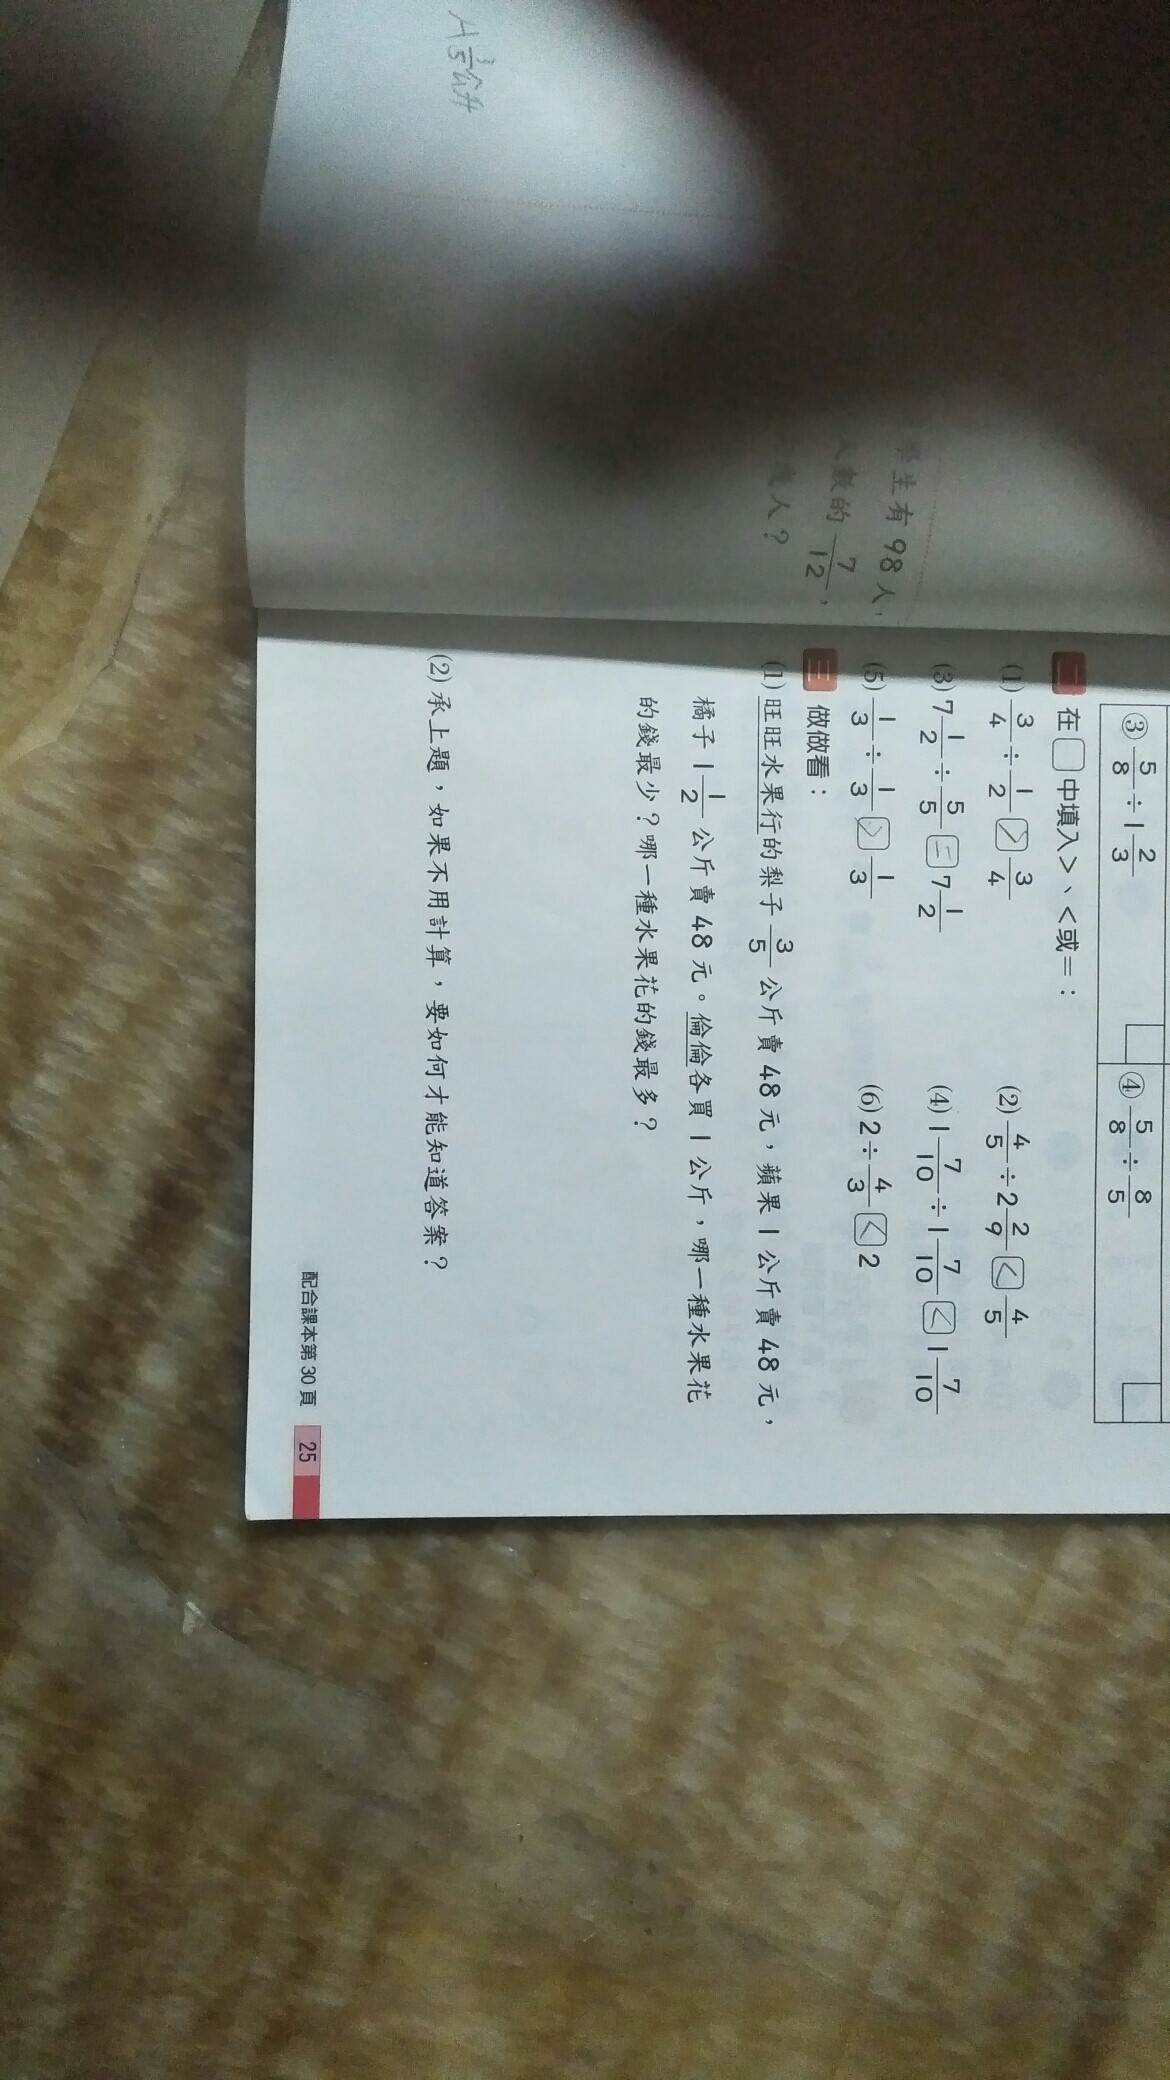 人 3/5 公升
學生有 98 人，
人數的 7/12，
人？
③ 5/8 ÷ 1 2/3 □
④ 5/8 ÷ 8/5 □
二 在□中填入＞、＜或＝：
(1) 3/4 ÷ 1/2 > 3/4
(2) 4/5 ÷ 2 2/9 < 4/5
(3) 7 1/2 ÷ 5/5 = 7 1/2
(4) 1 7/10 ÷ 1 7/10 < 1 7/10
(5) 1/3 ÷ 1/3 > 1/3
(6) 2 ÷ 4/3 < 2
三 做做看：
(1) 旺旺水果行的梨子 3/5 公斤賣 48 元，蘋果 1 公斤賣 48 元，
橘子 1 1/2 公斤賣 48 元。倫倫各買 1 公斤，哪一種水果花
的錢最少？哪一種水果花的錢最多？
(2) 承上題，如果不用計算，要如何才能知道答案？
配合課本第 30 頁 25